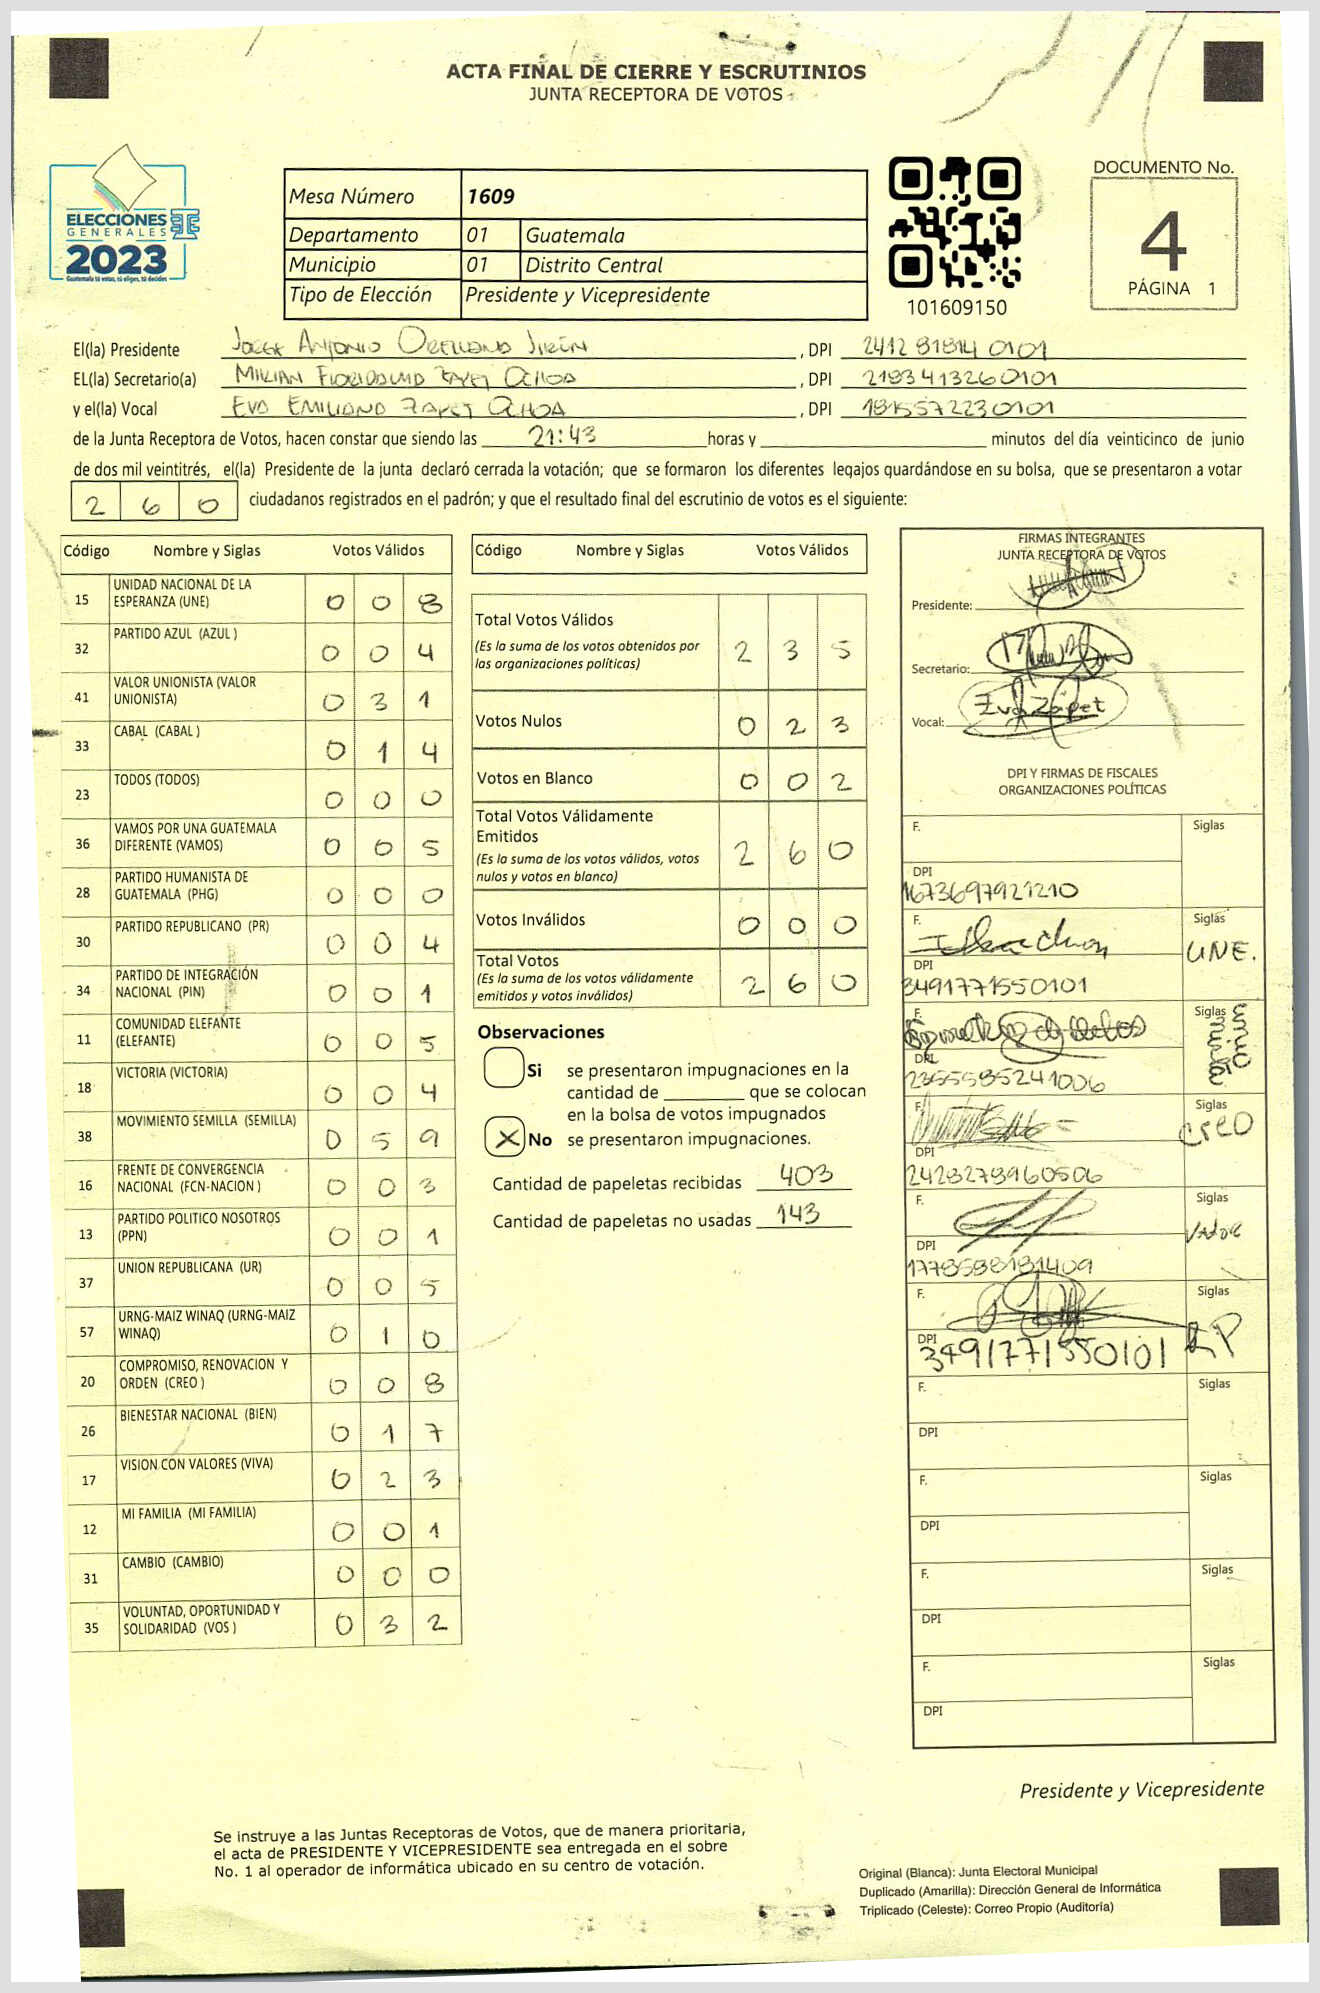 ACTA FINAL DE CIERRE Y ESCRUTINIOS
JUNTA RECEPTORA DE VOTOS
ELECCIONES
GENERALES
2023
Guatemala tú votas, tú eliges, tú decides
Mesa Número 1609
Departamento 01 Guatemala
Municipio 01 Distrito Central
Tipo de Elección Presidente y Vicepresidente
101609150
DOCUMENTO No.
4
PÁGINA 1
El(la) Presidente Jorge Antonio Orellana Jirón , DPI 2412 81814 0101
EL(la) Secretario(a) Mirian Floridalma Zapet Ochoa , DPI 2193413260101
y el(la) Vocal Eva Emiliana Zapet Ochoa , DPI 1815572230101
de la Junta Receptora de Votos, hacen constar que siendo las 21:43 horas y minutos del día veinticinco de junio
de dos mil veintitrés, el(la) Presidente de la junta declaró cerrada la votación; que se formaron los diferentes legajos guardándose en su bolsa, que se presentaron a votar
2 6 0 ciudadanos registrados en el padrón; y que el resultado final del escrutinio de votos es el siguiente:
Código Nombre y Siglas Votos Válidos
15 UNIDAD NACIONAL DE LA ESPERANZA (UNE) 0 0 8
32 PARTIDO AZUL (AZUL ) 0 0 4
41 VALOR UNIONISTA (VALOR UNIONISTA) 0 3 1
33 CABAL (CABAL ) 0 1 4
23 TODOS (TODOS) 0 0 0
36 VAMOS POR UNA GUATEMALA DIFERENTE (VAMOS) 0 0 5
28 PARTIDO HUMANISTA DE GUATEMALA (PHG) 0 0 0
30 PARTIDO REPUBLICANO (PR) 0 0 4
34 PARTIDO DE INTEGRACIÓN NACIONAL (PIN) 0 0 1
11 COMUNIDAD ELEFANTE (ELEFANTE) 0 0 5
18 VICTORIA (VICTORIA) 0 0 4
38 MOVIMIENTO SEMILLA (SEMILLA) 0 5 9
16 FRENTE DE CONVERGENCIA NACIONAL (FCN-NACION ) 0 0 3
13 PARTIDO POLITICO NOSOTROS (PPN) 0 0 1
37 UNION REPUBLICANA (UR) 0 0 5
57 URNG-MAIZ WINAQ (URNG-MAIZ WINAQ) 0 1 0
20 COMPROMISO, RENOVACION Y ORDEN (CREO ) 0 0 8
26 BIENESTAR NACIONAL (BIEN) 0 1 7
17 VISION CON VALORES (VIVA) 0 2 3
12 MI FAMILIA (MI FAMILIA) 0 0 1
31 CAMBIO (CAMBIO) 0 0 0
35 VOLUNTAD, OPORTUNIDAD Y SOLIDARIDAD (VOS ) 0 3 2
Código Nombre y Siglas Votos Válidos
Total Votos Válidos 2 3 5
(Es la suma de los votos obtenidos por
las organizaciones políticas)
Votos Nulos 0 2 3
Votos en Blanco 0 0 2
Total Votos Válidamente
Emitidos 2 6 0
(Es la suma de los votos válidos, votos
nulos y votos en blanco)
Votos Inválidos 0 0 0
Total Votos 2 6 0
(Es la suma de los votos válidamente
emitidos y votos inválidos)
Observaciones
Si se presentaron impugnaciones en la
cantidad de ________ que se colocan
en la bolsa de votos impugnados
X No se presentaron impugnaciones.
Cantidad de papeletas recibidas 403
Cantidad de papeletas no usadas 143
FIRMAS INTEGRANTES
JUNTA RECEPTORA DE VOTOS
Presidente:
Secretario:
Vocal: Eva Zapet
DPI Y FIRMAS DE FISCALES
ORGANIZACIONES POLÍTICAS
F. Siglas
DPI
1673697921210
F. Siglas
UNE.
DPI
3491771550101
F. Siglas
DPI
2355585241006
F. Siglas
CREO
DPI
2428278960506
F. Siglas
Valor
DPI
1778598181409
F. Siglas
DPI
3491771550101
F. Siglas
DPI
F. Siglas
DPI
F. Siglas
DPI
F. Siglas
DPI
Presidente y Vicepresidente
Se instruye a las Juntas Receptoras de Votos, que de manera prioritaria,
el acta de PRESIDENTE Y VICEPRESIDENTE sea entregada en el sobre
No. 1 al operador de informática ubicado en su centro de votación.
Original (Blanca): Junta Electoral Municipal
Duplicado (Amarilla): Dirección General de Informática
Triplicado (Celeste): Correo Propio (Auditoría)